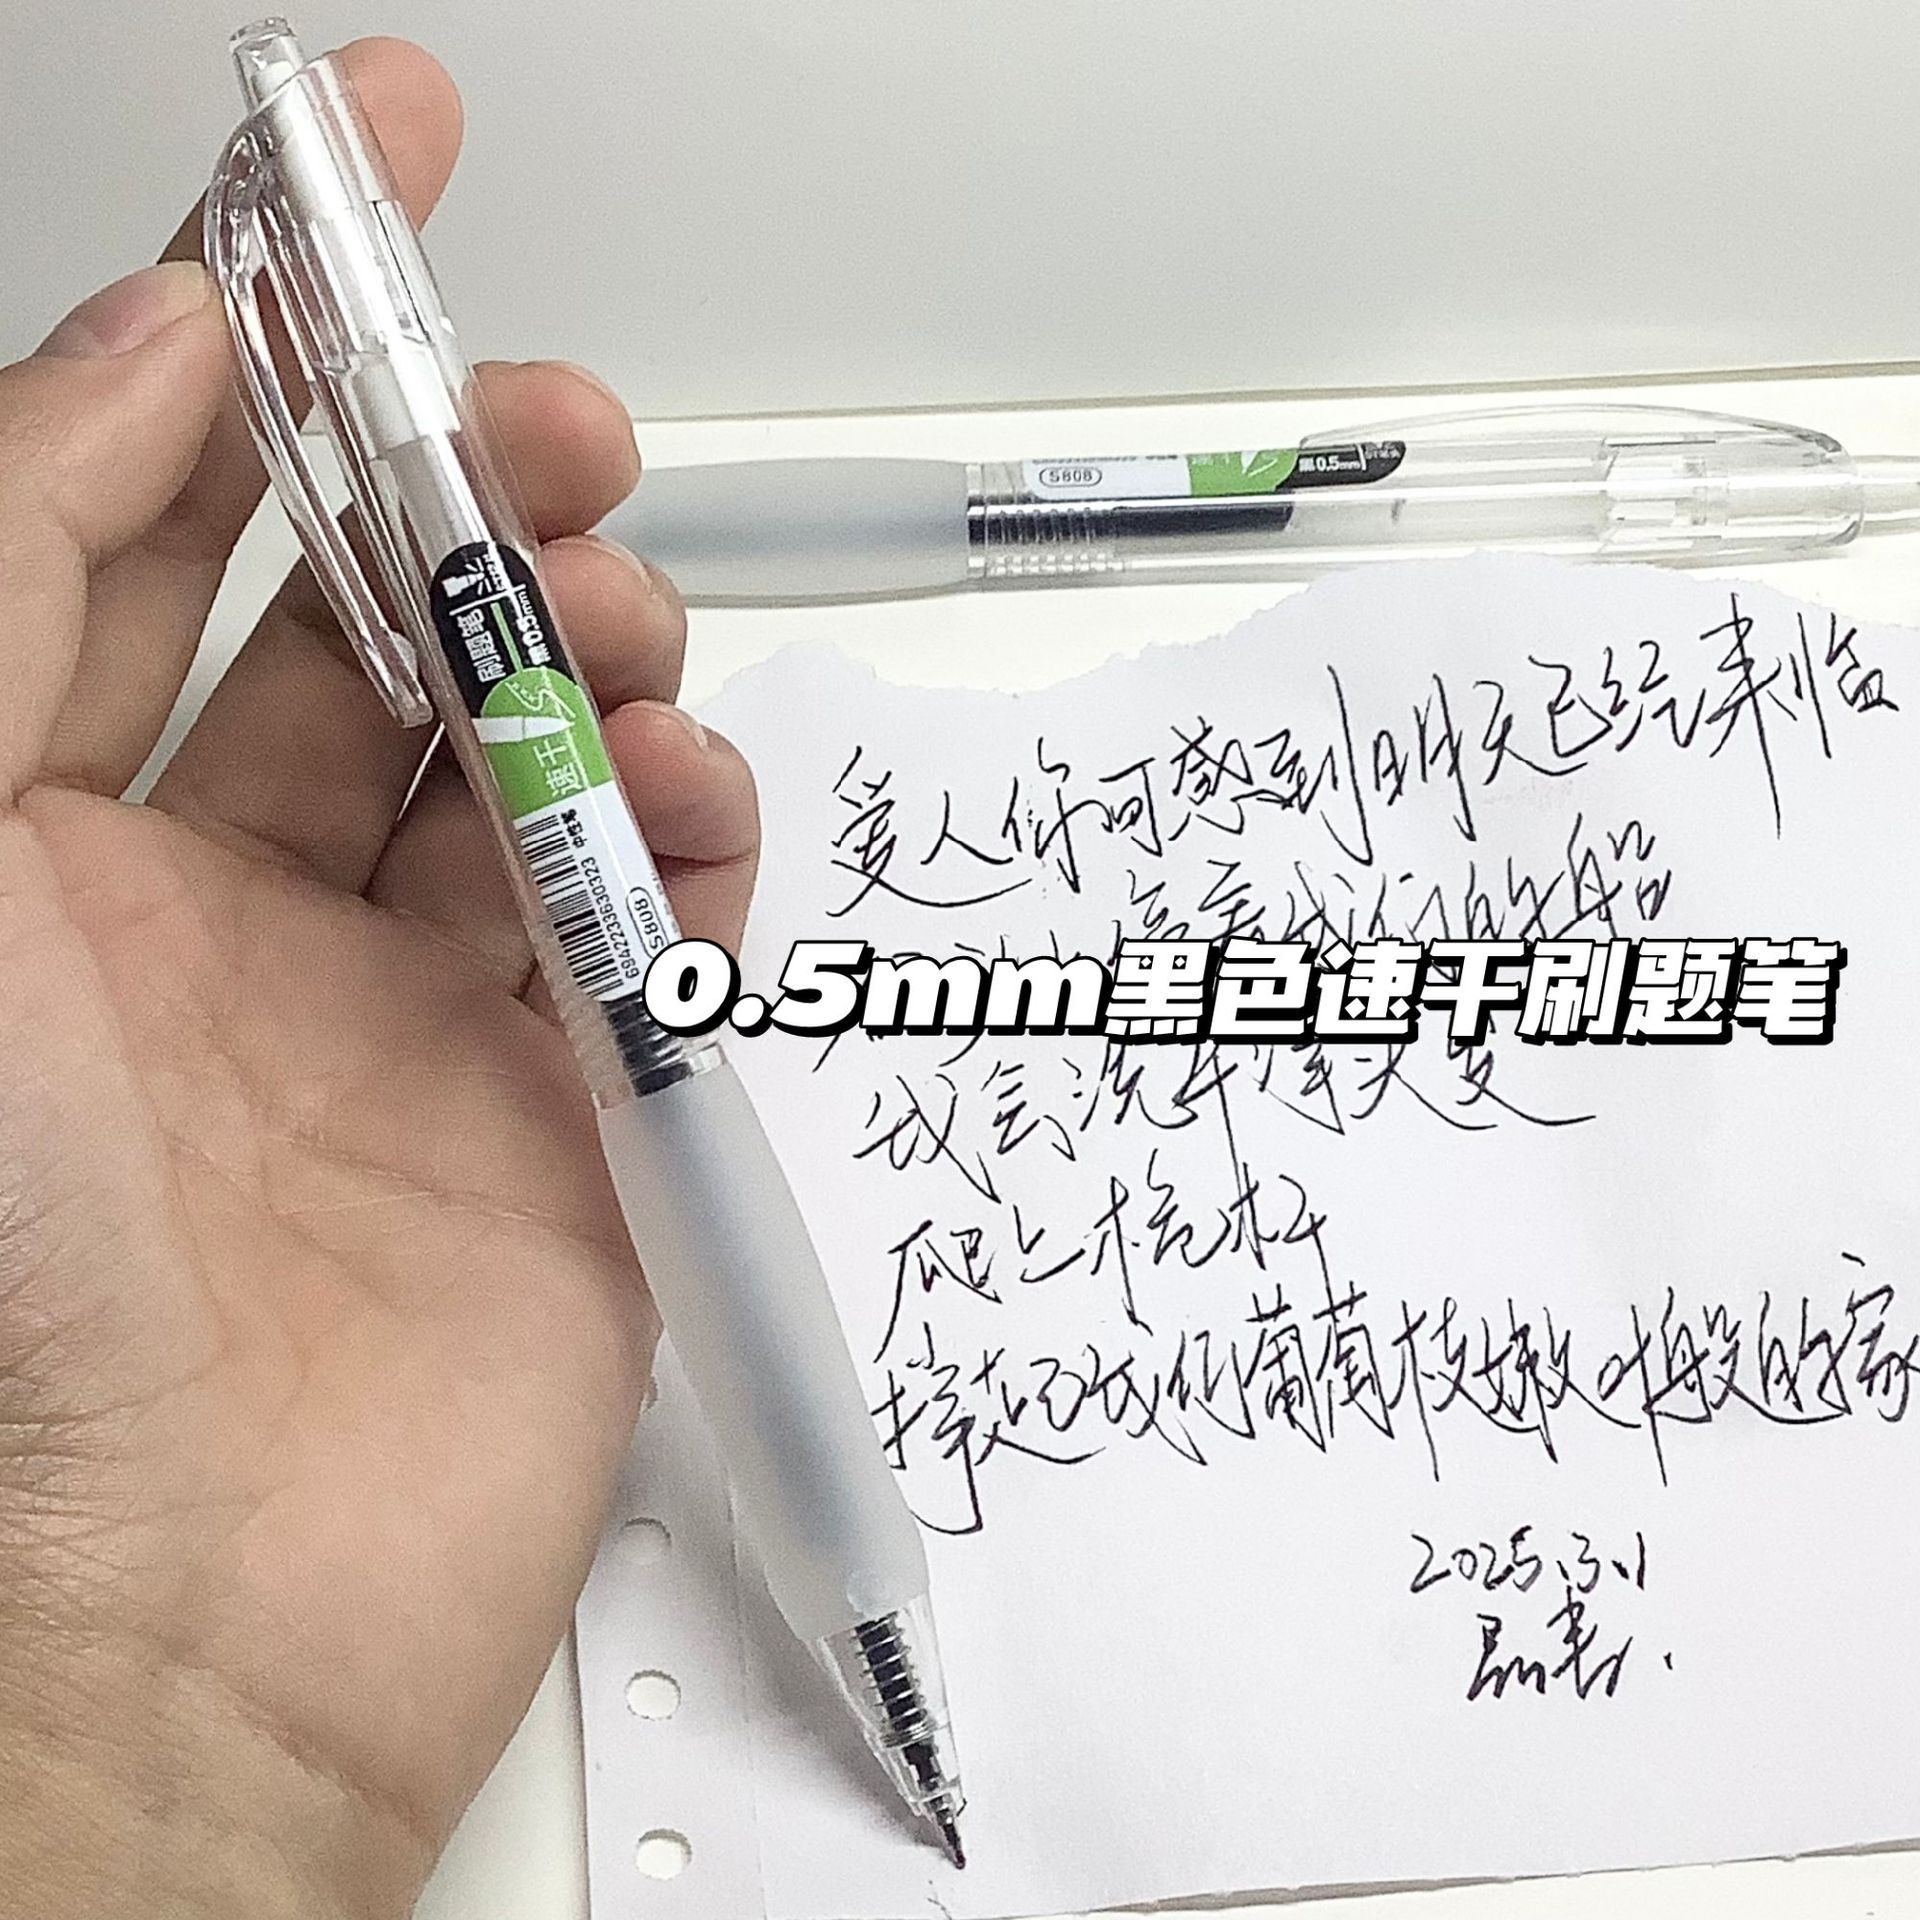 刷题笔
黑0.5mm
速干
中性笔
6942233630323
S808
S808
速干
黑0.5mm
爱人你可感到明天已经来临
停着我们的船
0.5mm黑色速干刷题笔
我会洗干净头发
爬上桅杆
撑起我们葡萄枝嫩叶般的家
2025.3.1